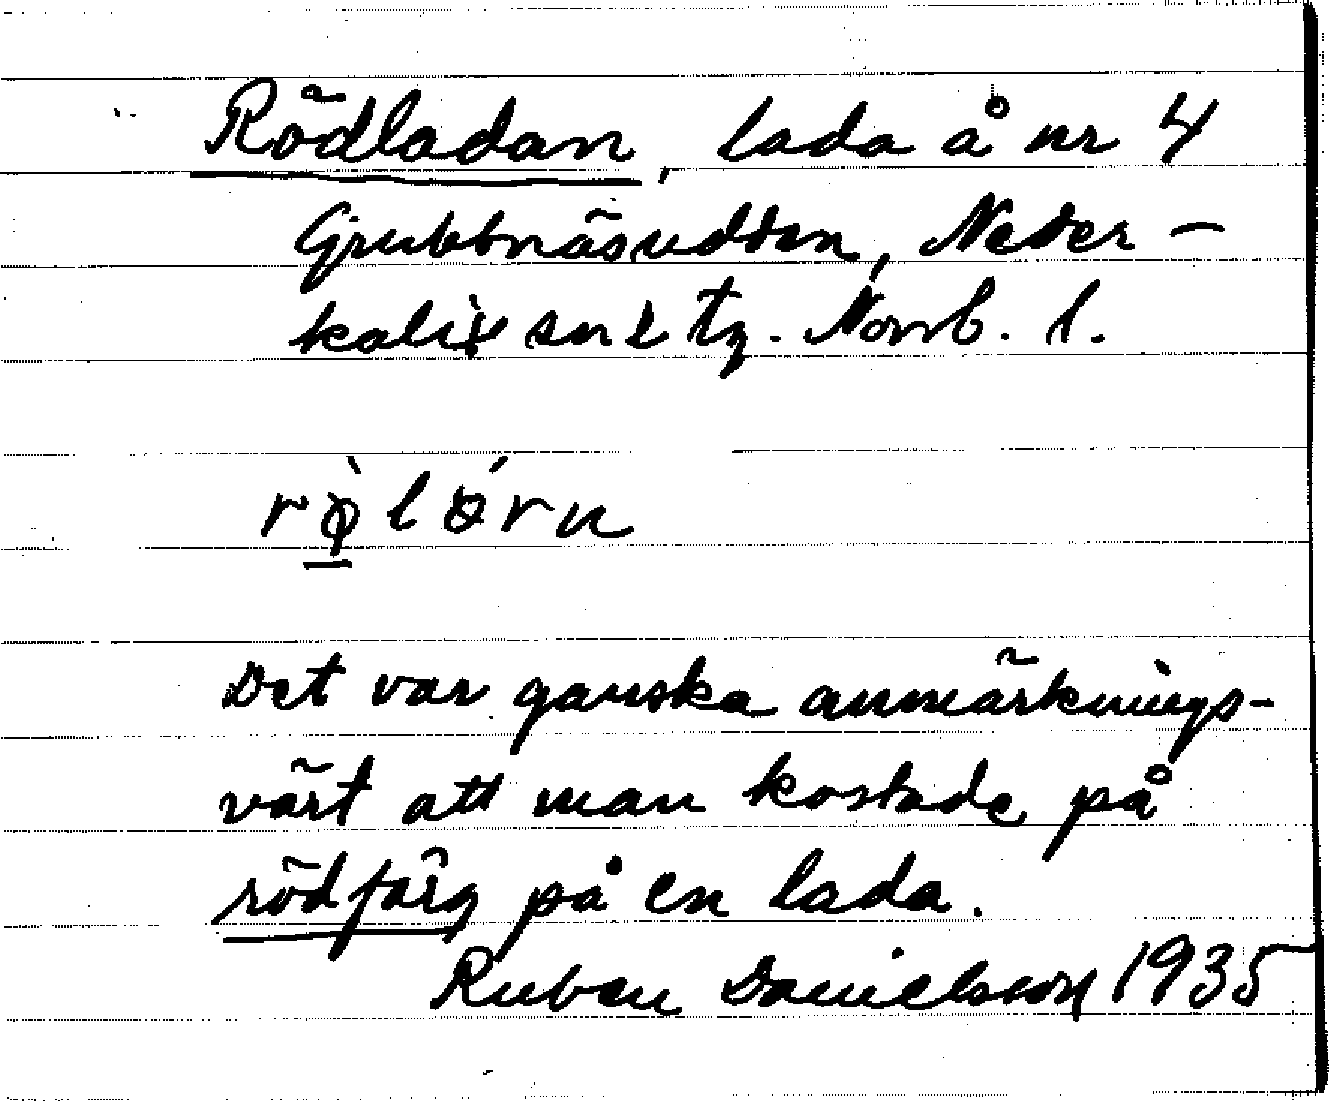 Rödladan, lada å nr 4
Grubbnäsudden, Neder-
kalix sn l tg. Norrb. l.
Det var ganska anmärknings-
värt att man kostade på
rödfärg på en lada.
Ruben Danielsson 1935